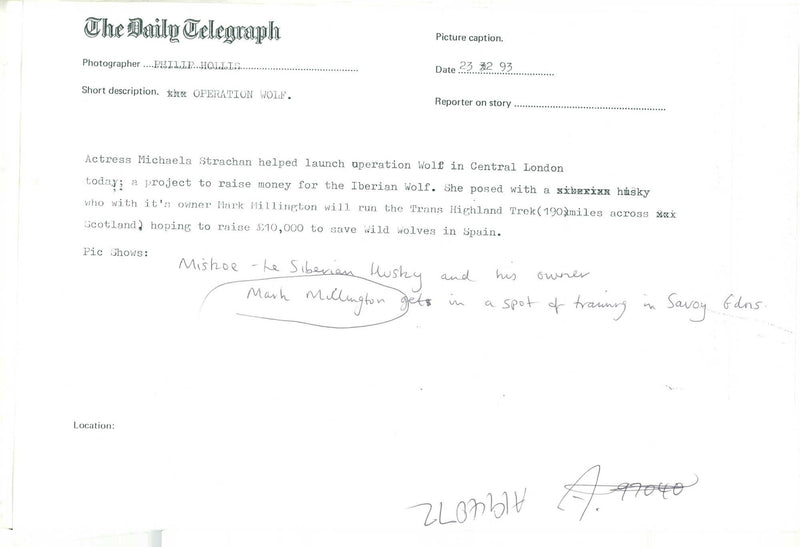 The Daily Telegraph
Picture caption.
Photographer ....PHILIP HOLLIS
Date 23 12 93
Short description. OPERATION WOLF.
Reporter on story
Actress Michaela Strachan helped launch operation Wolf in Central London
today; a project to raise money for the Iberian Wolf. She posed with a siberian husky
who with it's owner Mark Millington will run the Trans Highland Trek(190)miles across
Scotland) hoping to raise £10,000 to save wild wolves in Spain.
Pic Shows:
the Siberian Husky and his owner
Mark Millington gets in a spot of training in Savoy Gdns.
Location:
A. 97040